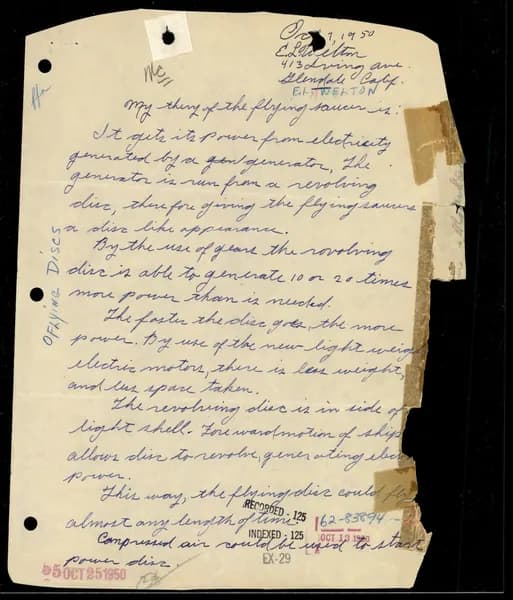 Oct 7, 1950
E.L. Welton
413 Irving ave.
Glendale Calif.
E.L. WELTON
My thery of the flying saucer is:
It gets its power from electricity
generated by a generator, The
generator is run from a revolving
disc, therefore giving the flying saucers
a disc like appearance.
By the use of gears the revolving
disc is able to generate 10 or 20 times
more power than is needed.
The faster the disc goes, the more
power. By use of the new light weigh
electric motors, there is less weight,
and less space taken.
The revolving disc is in side of
light shell. Foreward motion of ship
allows disc to revolve, generating elec
power.
This way, the flying disc could fly
almost any length of time.
Compressed air could be used to start
power disc.
FLYING DISCS
RECORDED - 125
INDEXED - 125
EX-29
62-83894-
OCT 13 1950
55 OCT 25 1950